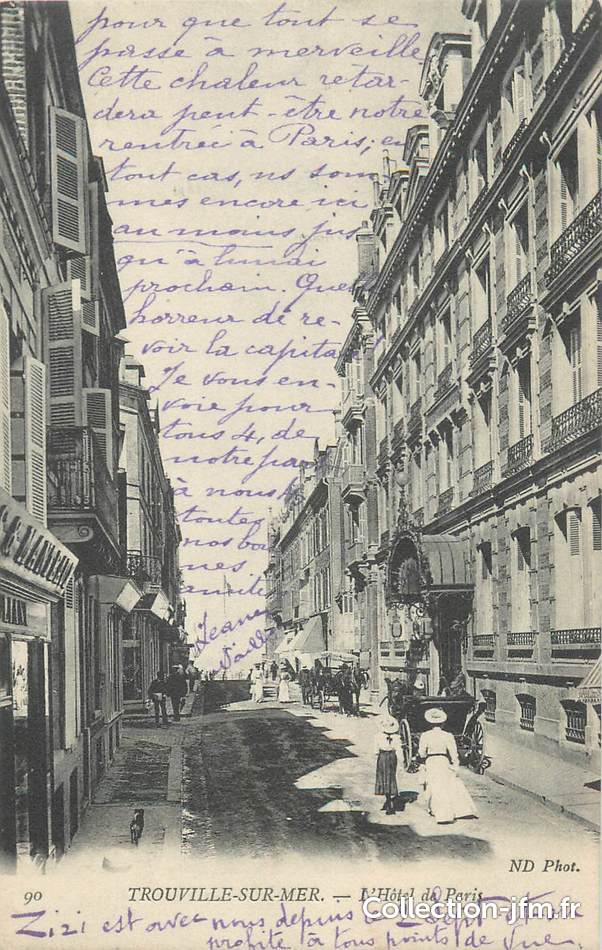 pour que tout se
passe à merveille.
Cette chaleur retar-
dera peut-être notre
rentrée à Paris; en
tout cas, ns som
mes encore ici
au moins jus
qu'à lundi
prochain. Quelle
horreur de re-
voir la capitale!
Je vous en-
voie pour
tous 4, de
notre part
à nous
toutes
nos bon
nes
amitiés
Jeanne
C. LIANEM
90 TROUVILLE-SUR-MER. — L'Hôtel de Paris
ND Phot.
Collection-jfm.fr
Zizi est avec nous depuis le
profite à tous points de vue.